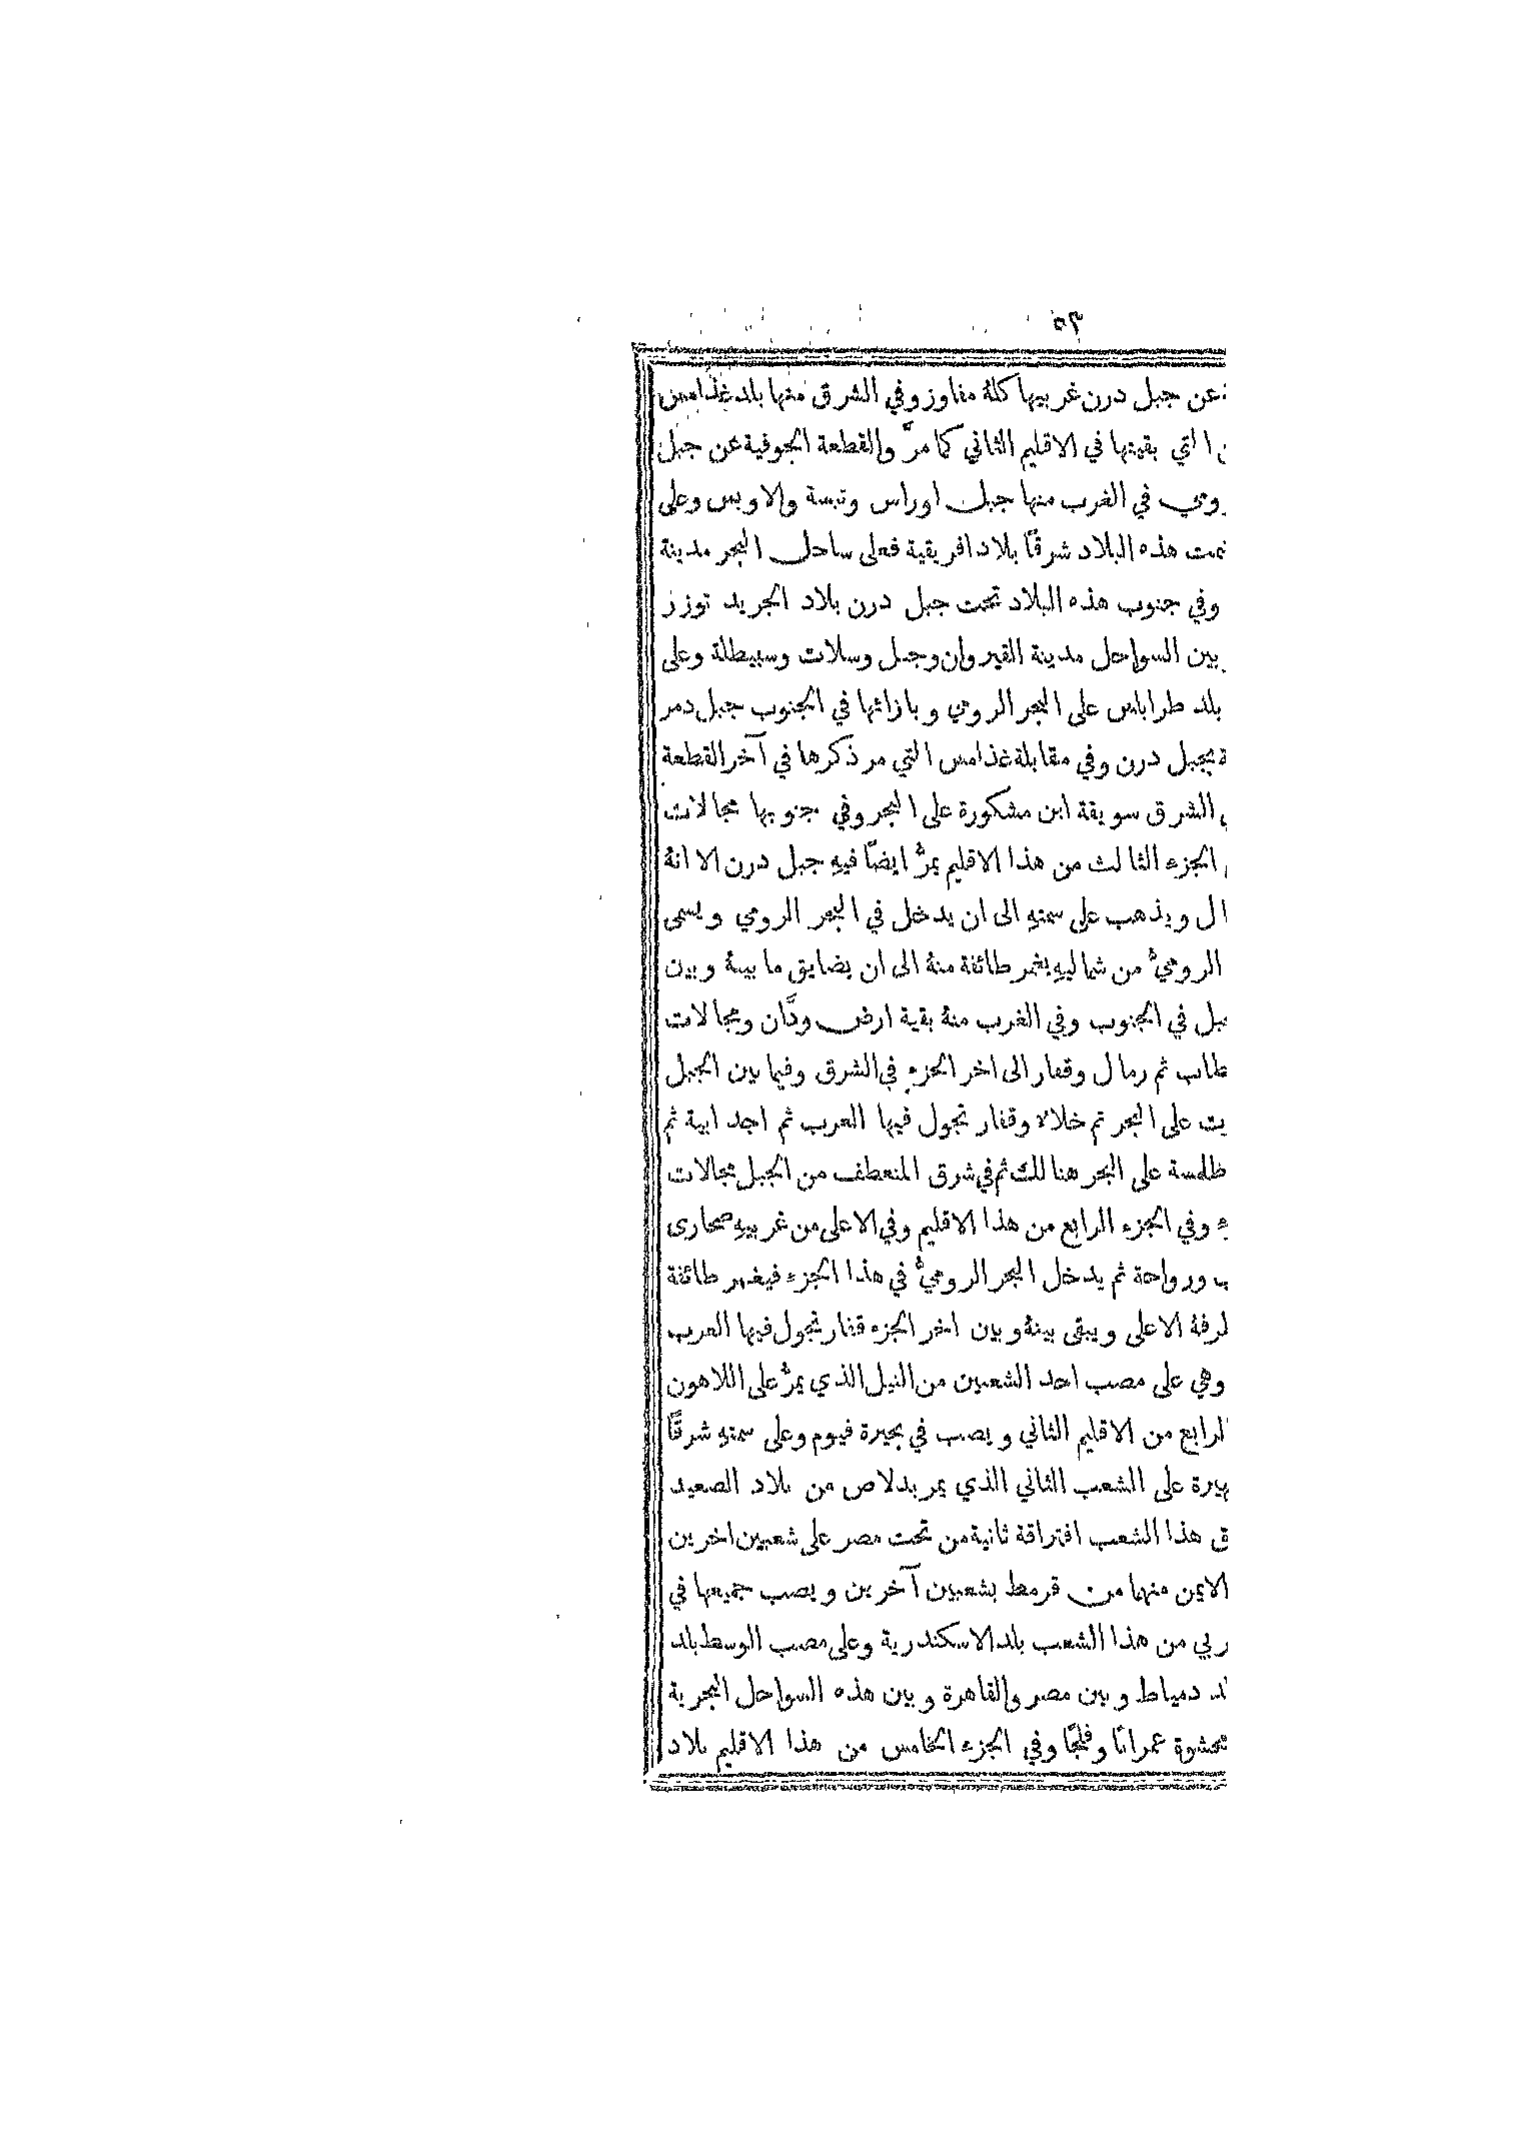 ٥٣
عن جبل درن غربيها كلهُ مفاوز وفي الشرق منها بلد غذامس
التي بقيتها في الاقليم الثاني كما مرَّ والقطعة الجوفية عن جبل
في الغرب منها جبل اوراس وتبسة والاوبس وعلى
هذه البلاد شرقًا بلاد افريقية فعلى ساحل البحر مدينة
وفي جنوب هذه البلاد تحت جبل درن بلاد الجريد توزر
بين السواحل مدينة القيروان وجبل وسلات وسبيطلة وعلى
بلد طرابلس على البحر الرومي وبازائها في الجنوب جبل دمر
بجبل درن وفي مقابلة غذامس التي مر ذكرها في آخر القطعة
الشرق سويقة ابن مشكورة على البحر وفي جنوبها مجالات
الجزء الثالث من هذا الاقليم يمرُّ ايضًا فيهِ جبل درن الا انهُ
ويذهب على سمتهِ الى ان يدخل في البحر الرومي ويسمى
الروميُّ من شماليهِ يغمر طائفة منهُ الى ان يضايق ما بينهُ وبين
في الجنوب وفي الغرب منهُ بقية ارض ودَّان ومجالات
ثم رمال وقفار الى اخر الجزء في الشرق وفيما بين الجبل
على البحر ثم خلاء وقفار تجول فيها العرب ثم اجدابية ثم
على البحر هنالك ثم في شرق المنعطف من الجبل مجالات
وفي الجزء الرابع من هذا الاقليم وفي الاعلى من غربيهِ صحارى
ورواحة ثم يدخل البحر الروميُّ في هذا الجزء فيغمر طائفة
الاعلى ويبقى بينهُ وبين اخر الجزء قفار تجول فيها العرب
وهي على مصب احد الشعبين من النيل الذي يمرُّ على اللاهون
الرابع من الاقليم الثاني ويصب في بحيرة فيوم وعلى سمتهِ شرقًا
على الشعب الثاني الذي يمر بدلاص من بلاد الصعيد
هذا الشعب افتراقة ثانية من تحت مصر على شعبين اخرين
الايمن منهما من قرمط بشعبين آخرين ويصب جميعها في
من هذا الشعب بلد الاسكندرية وعلى مصب الوسط بلد
دمياط وبين مصر والقاهرة وبين هذه السواحل البحرية
محشوة عمرانًا وفلجًا وفي الجزء الخامس من هذا الاقليم بلاد